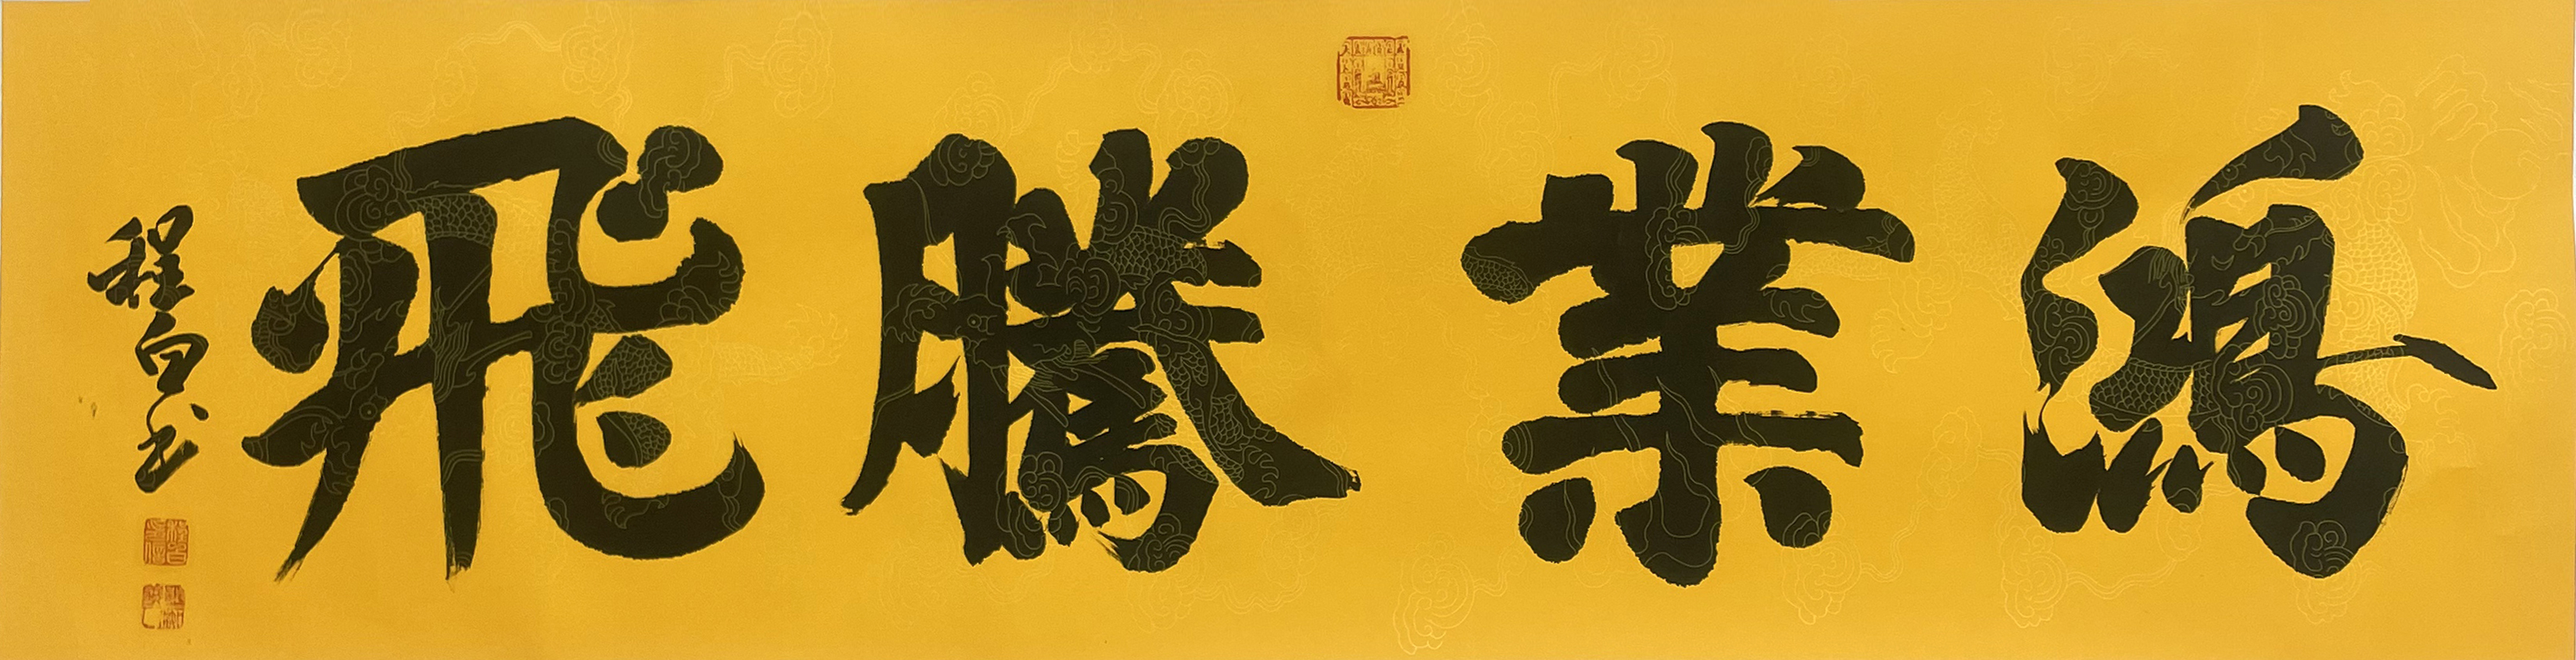 鴻業騰飛
程白书